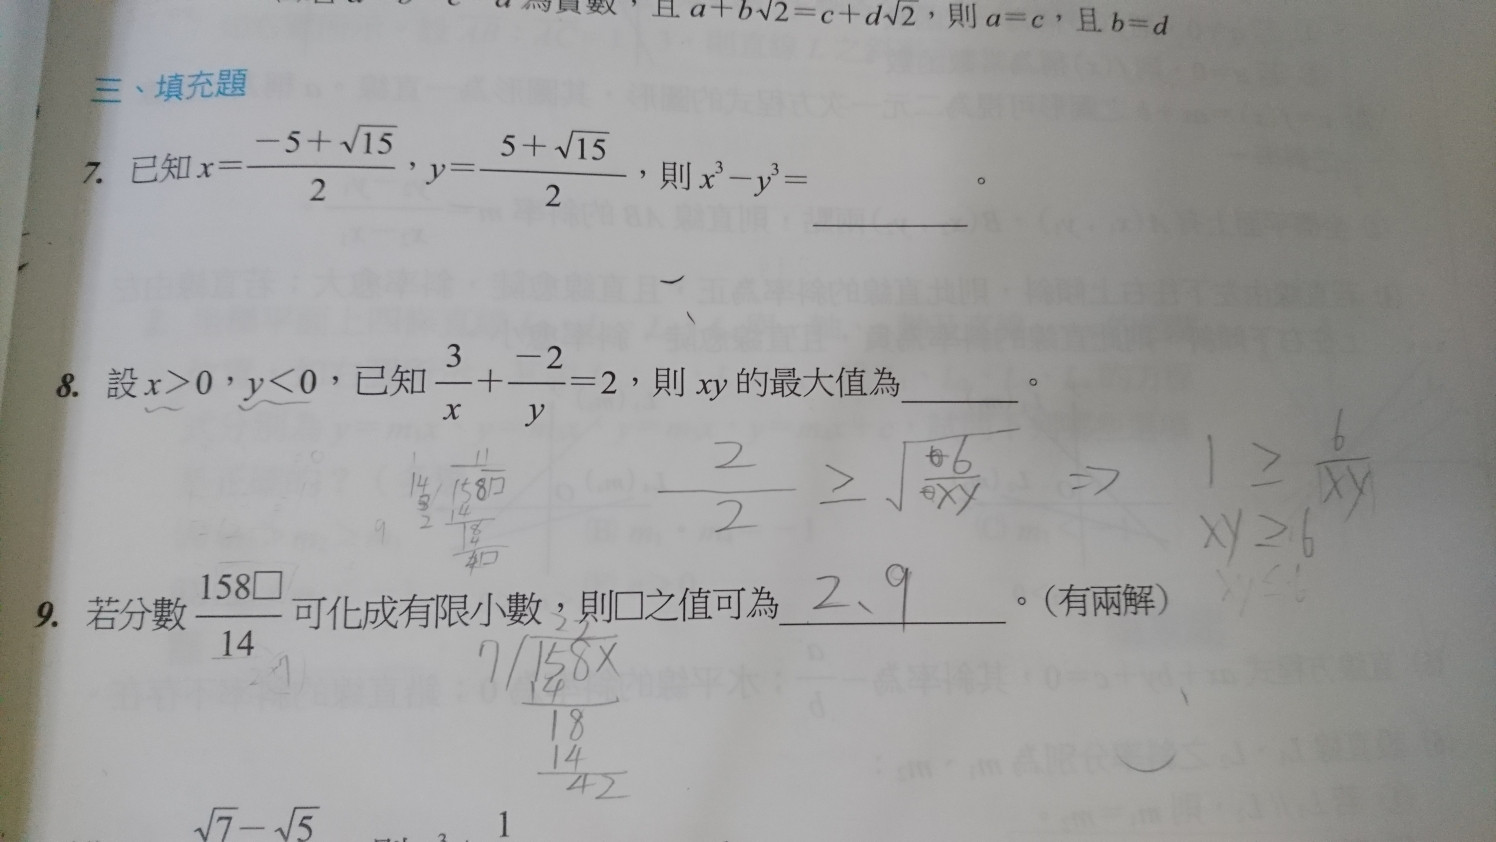 為實數，且 a+b√2=c+d√2，則 a=c，且 b=d
三、填充題
7. 已知 x=(-5+√15)/2，y=(5+√15)/2，則 x³-y³=______。
8. 設 x>0，y<0，已知 3/x + -2/y =2，則 xy 的最大值為______。
2/2 ≥ √(6/xy) ⇒ 1 ≥ 6/|xy|
xy≥6
11
14/158□
14
18
4□
9
9. 若分數 158□/14 可化成有限小數，則□之值可為 2、9 。(有兩解)
22
7/158x
14
18
14
42
√7-√5
1